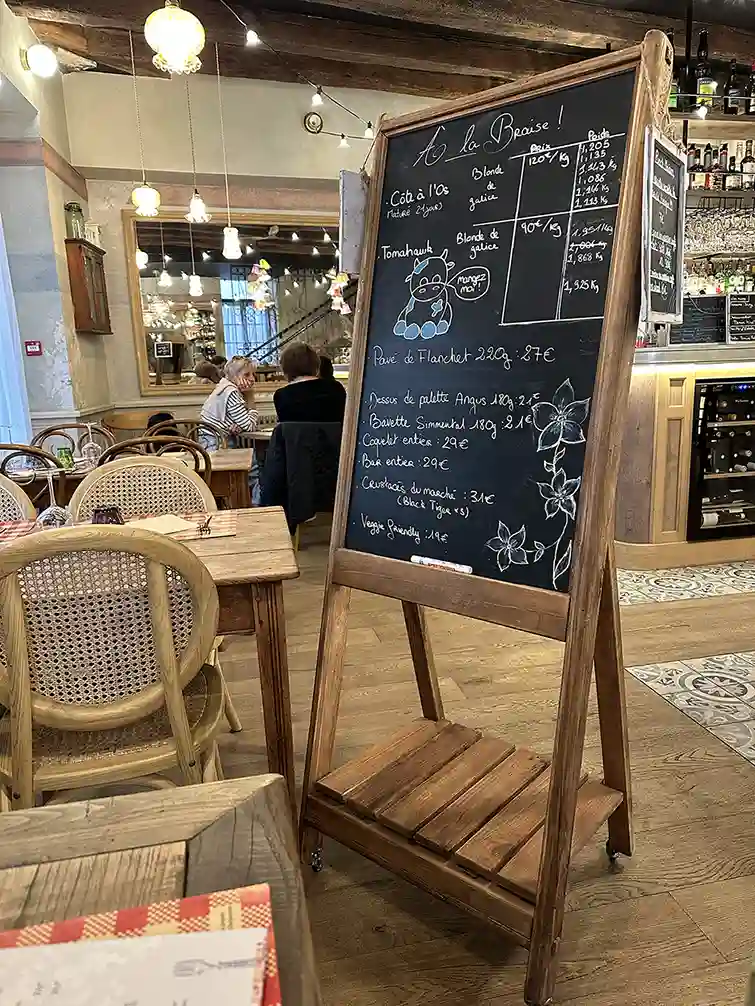 A la Braise !
Prix Poids
. Côte à l'Os
Maturé 21 jours
Blonde
de
galice
120€/Kg
1,205
1,135
1,143 Kg
1,086
1,113 Kg
Tomahawk
Blonde de
galice
90€/Kg
1,951 Kg
1,868 Kg
1,525 Kg
mangez
moi !
. Pavé de Flanchet 220g : 27€
. Dessus de palette Angus 180g : 21€
. Bavette Simmental 180g : 21€
. Coquelet entier : 29€
. Bar entier : 29€
. Crustacés du marché : 31€
(Black Tiger x3)
. Veggie friendly : 19€